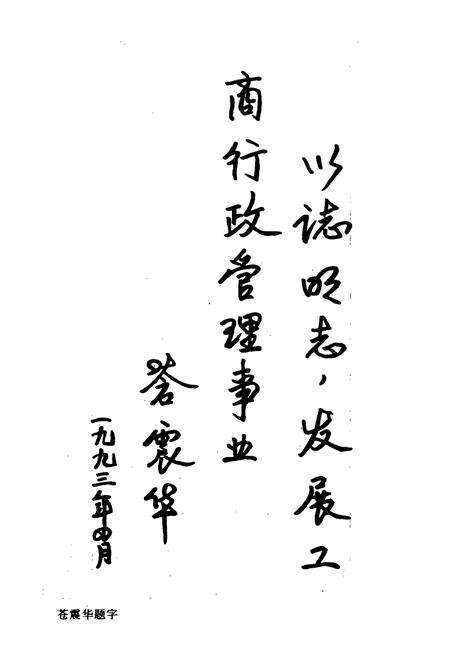 以誌明志，发展工
商行政管理事业
苍震华
一九九三年四月
苍震华题字